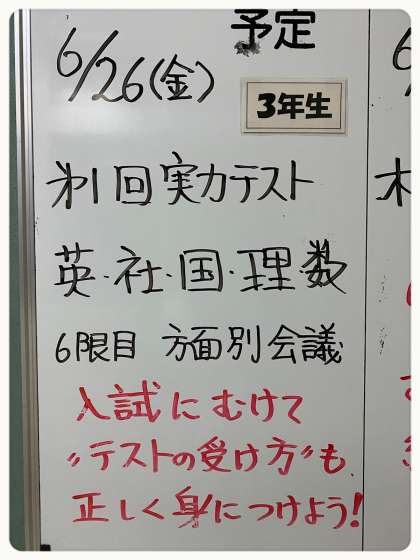 予定
6/26(金)
3年生
第1回実力テスト
英・社・国・理・数
6限目 方面別会議
入試にむけて
〃テストの受け方〃も
正しく身につけよう!